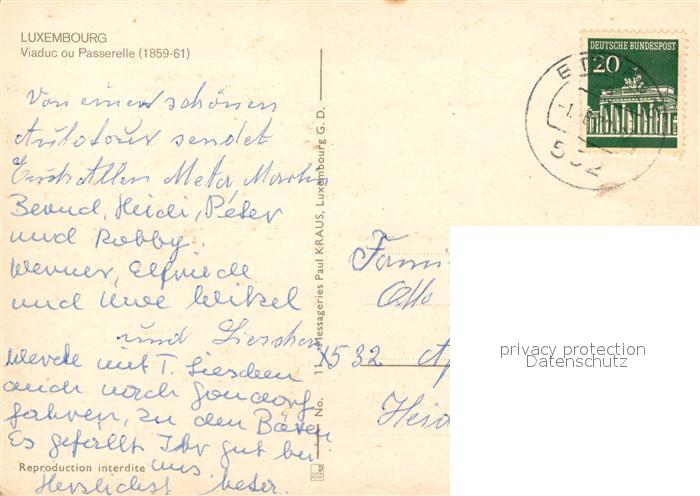 LUXEMBOURG
Viaduc ou Passerelle (1859-61)
Von einer schönen
Autotour sendet
Euch Allen Meta, Martin
Bernd, Heidi, Peter
und Robby.
Werner, Elfriede
und Uwe Wikel
und Lieschen
Werde mit T. Lieschen
auch nach Gondorf
fahren, zu den Bären
Es gefällt Ihr gut bei
uns.
Herzlichst
Reproduction interdite
No. 11 - Messageries Paul KRAUS, Luxembourg G. D.
DEUTSCHE BUNDESPOST
20
Otto
X532
privacy protection
Datenschutz